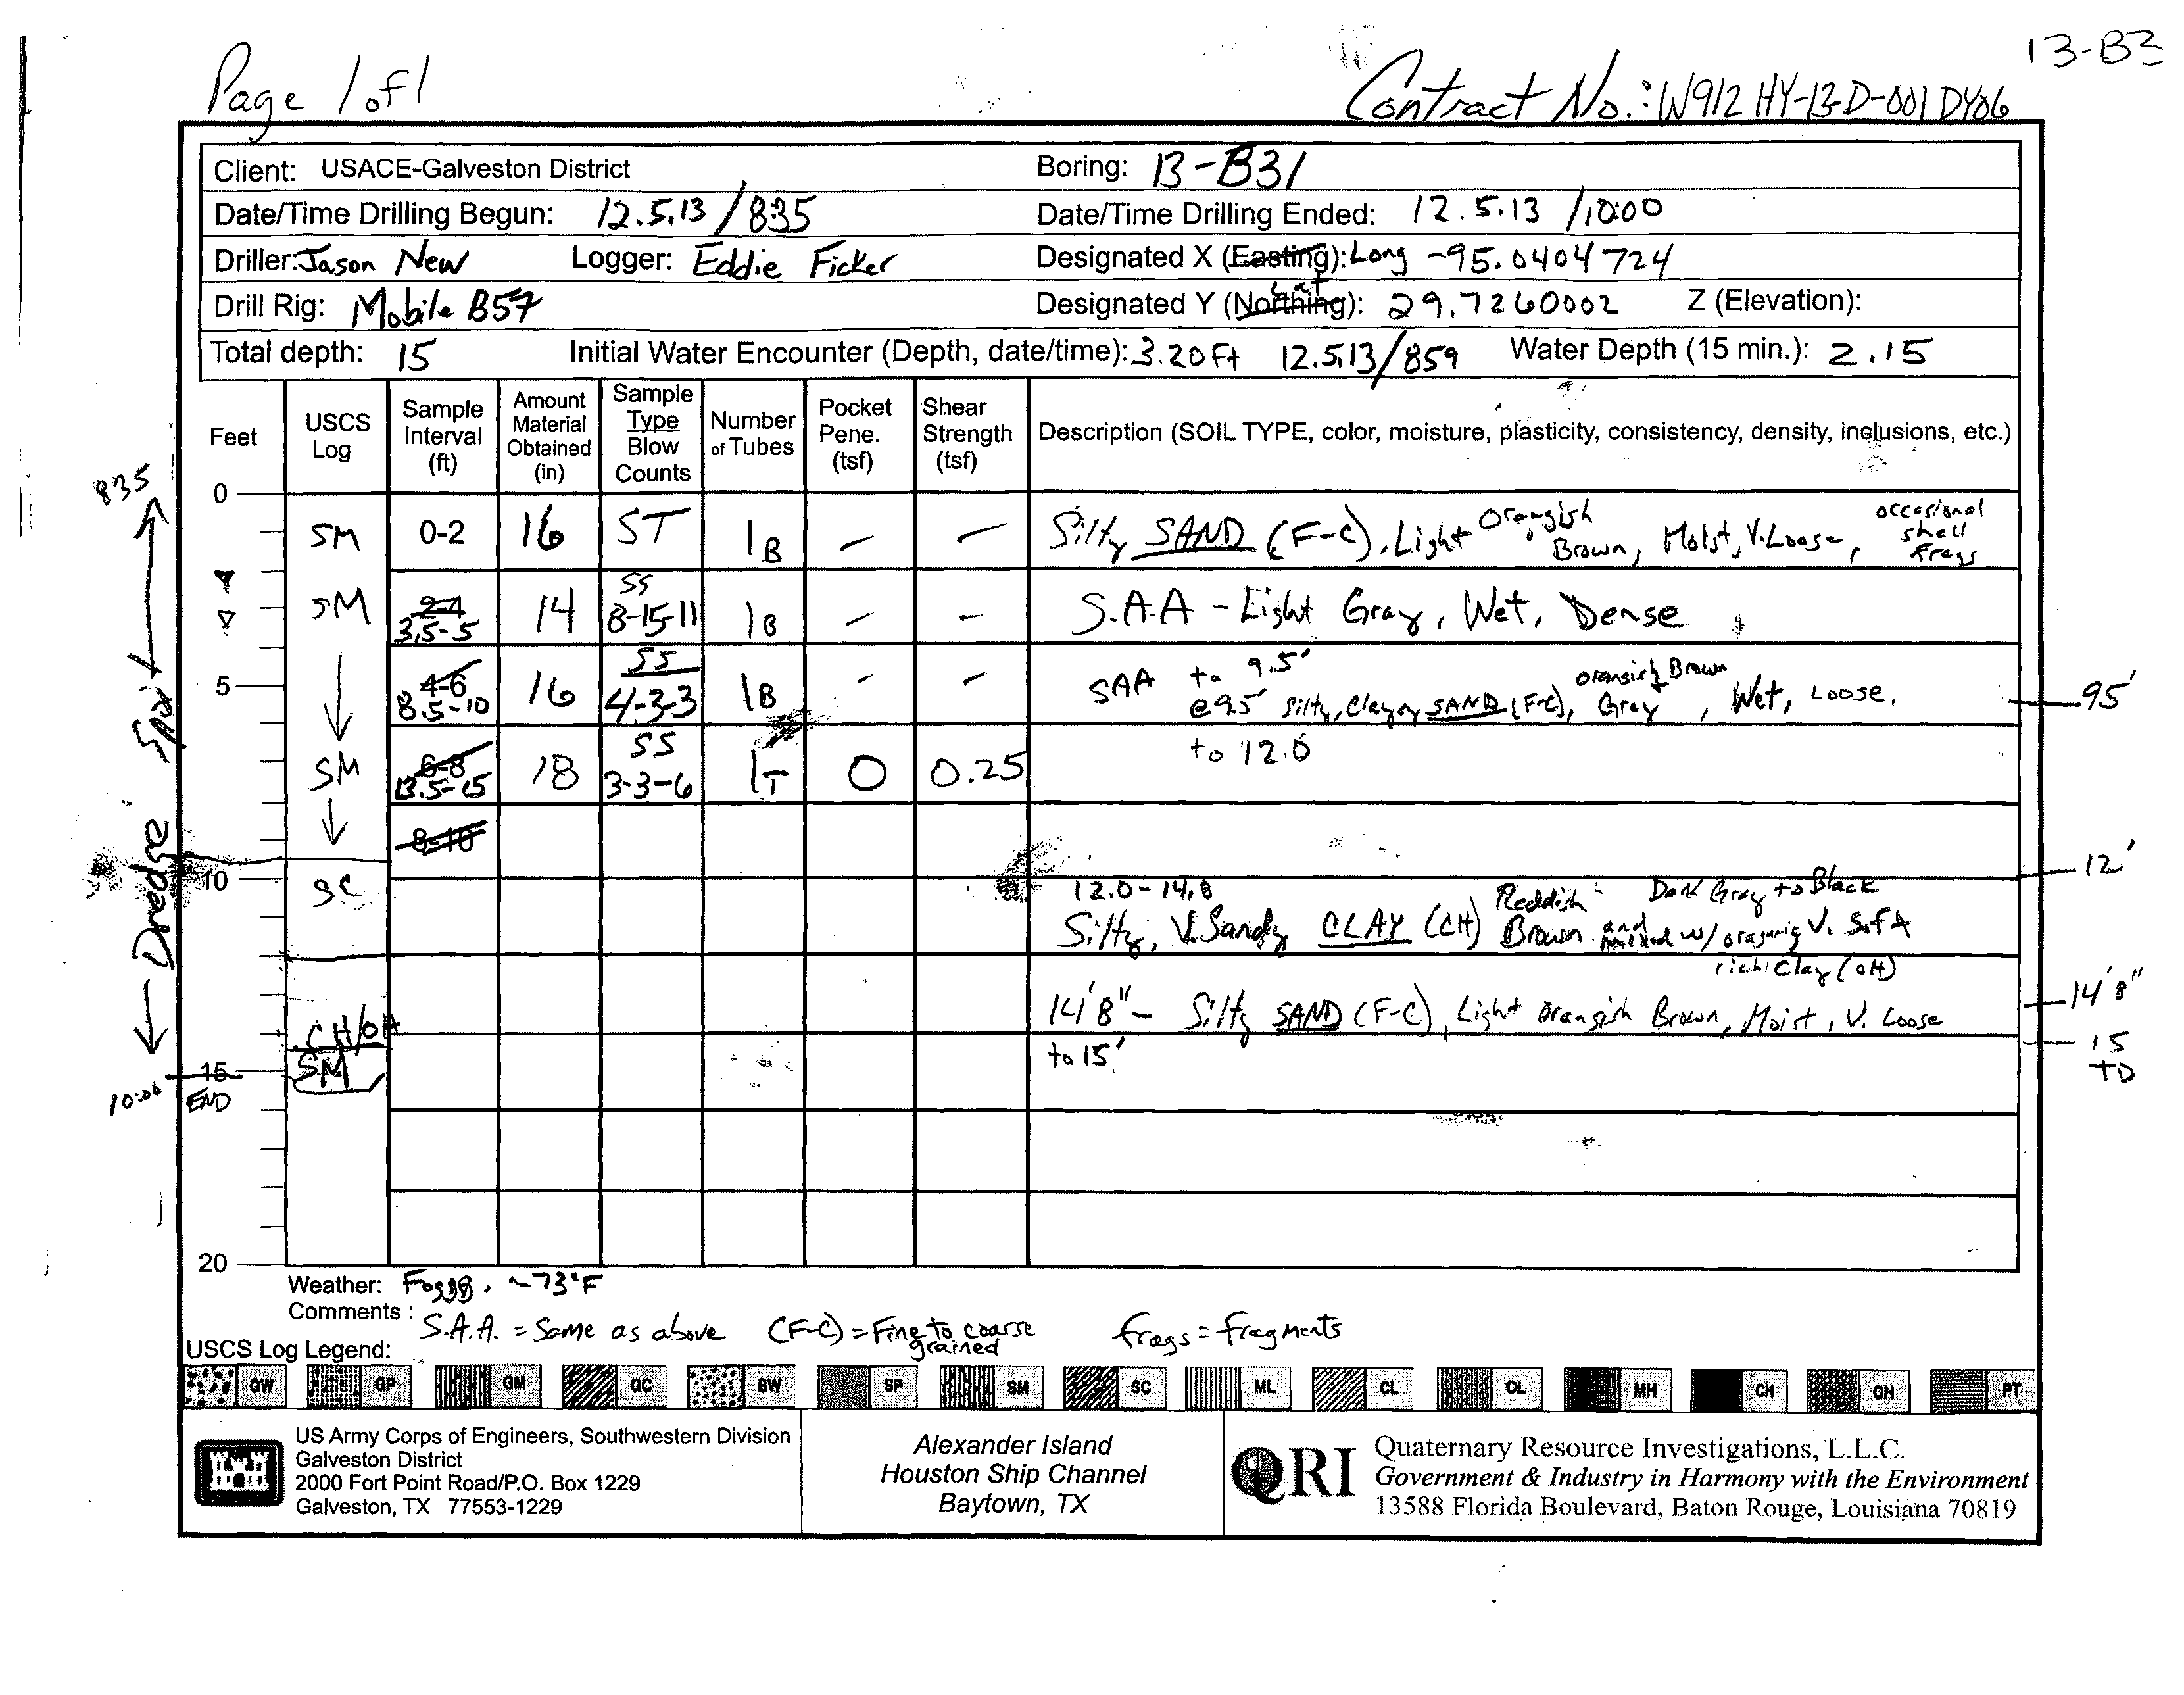 13-B3
Page 1 of 1
Contract No.: W912HY-13-D-001 DY06
Client: USACE-Galveston District Boring: 13-B31
Date/Time Drilling Begun: 12.5.13 / 835 Date/Time Drilling Ended: 12.5.13 / 10:00
Driller: Jason New Logger: Eddie Ficker Designated X (Easting): Long -95.0404724
Drill Rig: Mobile B57 Designated Y (Northing): Lat 29.7260002 Z (Elevation):
Total depth: 15 Initial Water Encounter (Depth, date/time): 3.20 Ft 12.5.13/859 Water Depth (15 min.): 2.15
Feet
USCS Log
Sample Interval (ft)
Amount Material Obtained (in)
Sample Type Blow Counts
Number of Tubes
Pocket Pene. (tsf)
Shear Strength (tsf)
Description (SOIL TYPE, color, moisture, plasticity, consistency, density, inclusions, etc.)
835
← Dredge Spoil →
0
SM 0-2 16 ST 1B - - Silty SAND (F-C), Light Orangish Brown, Moist, V. Loose, occasional shell frags
SM 2-4 3.5-5 14 SS 8-15-11 1B - - S.A.A - Light Gray, Wet, Dense
5 4-6 8.5-10 16 SS 4-3-3 1B - - SAA to 9.5'
@9.5' Silty, Clayey SAND (F-C), orangish Brown Gray, Wet, Loose, 9.5'
SM 6-8 13.5-15 18 SS 3-3-6 1T 0 0.25 to 12.0
8-10
12'
10 SC 12.0-14.8
Silty, V. Sandy CLAY (CH) Reddish Brown and mixed w/ Dark Gray to Black V. Soft
rich Clay (OH)
CH/OH 14'8" - Silty SAND (F-C), Light Orangish Brown, Moist, V. Loose 14'8"
SM to 15'
15 TD
15
10:00 END
20
Weather: Foggy, ~73°F
Comments: S.A.A. = Same as above (F-C) = Fine to coarse grained frags = fragments
USCS Log Legend:
GW GP GM GC SW SP SM SC ML CL OL MH CH OH PT
US Army Corps of Engineers, Southwestern Division
Galveston District
2000 Fort Point Road/P.O. Box 1229
Galveston, TX 77553-1229
Alexander Island
Houston Ship Channel
Baytown, TX
QRI
Quaternary Resource Investigations, L.L.C.
Government & Industry in Harmony with the Environment
13588 Florida Boulevard, Baton Rouge, Louisiana 70819